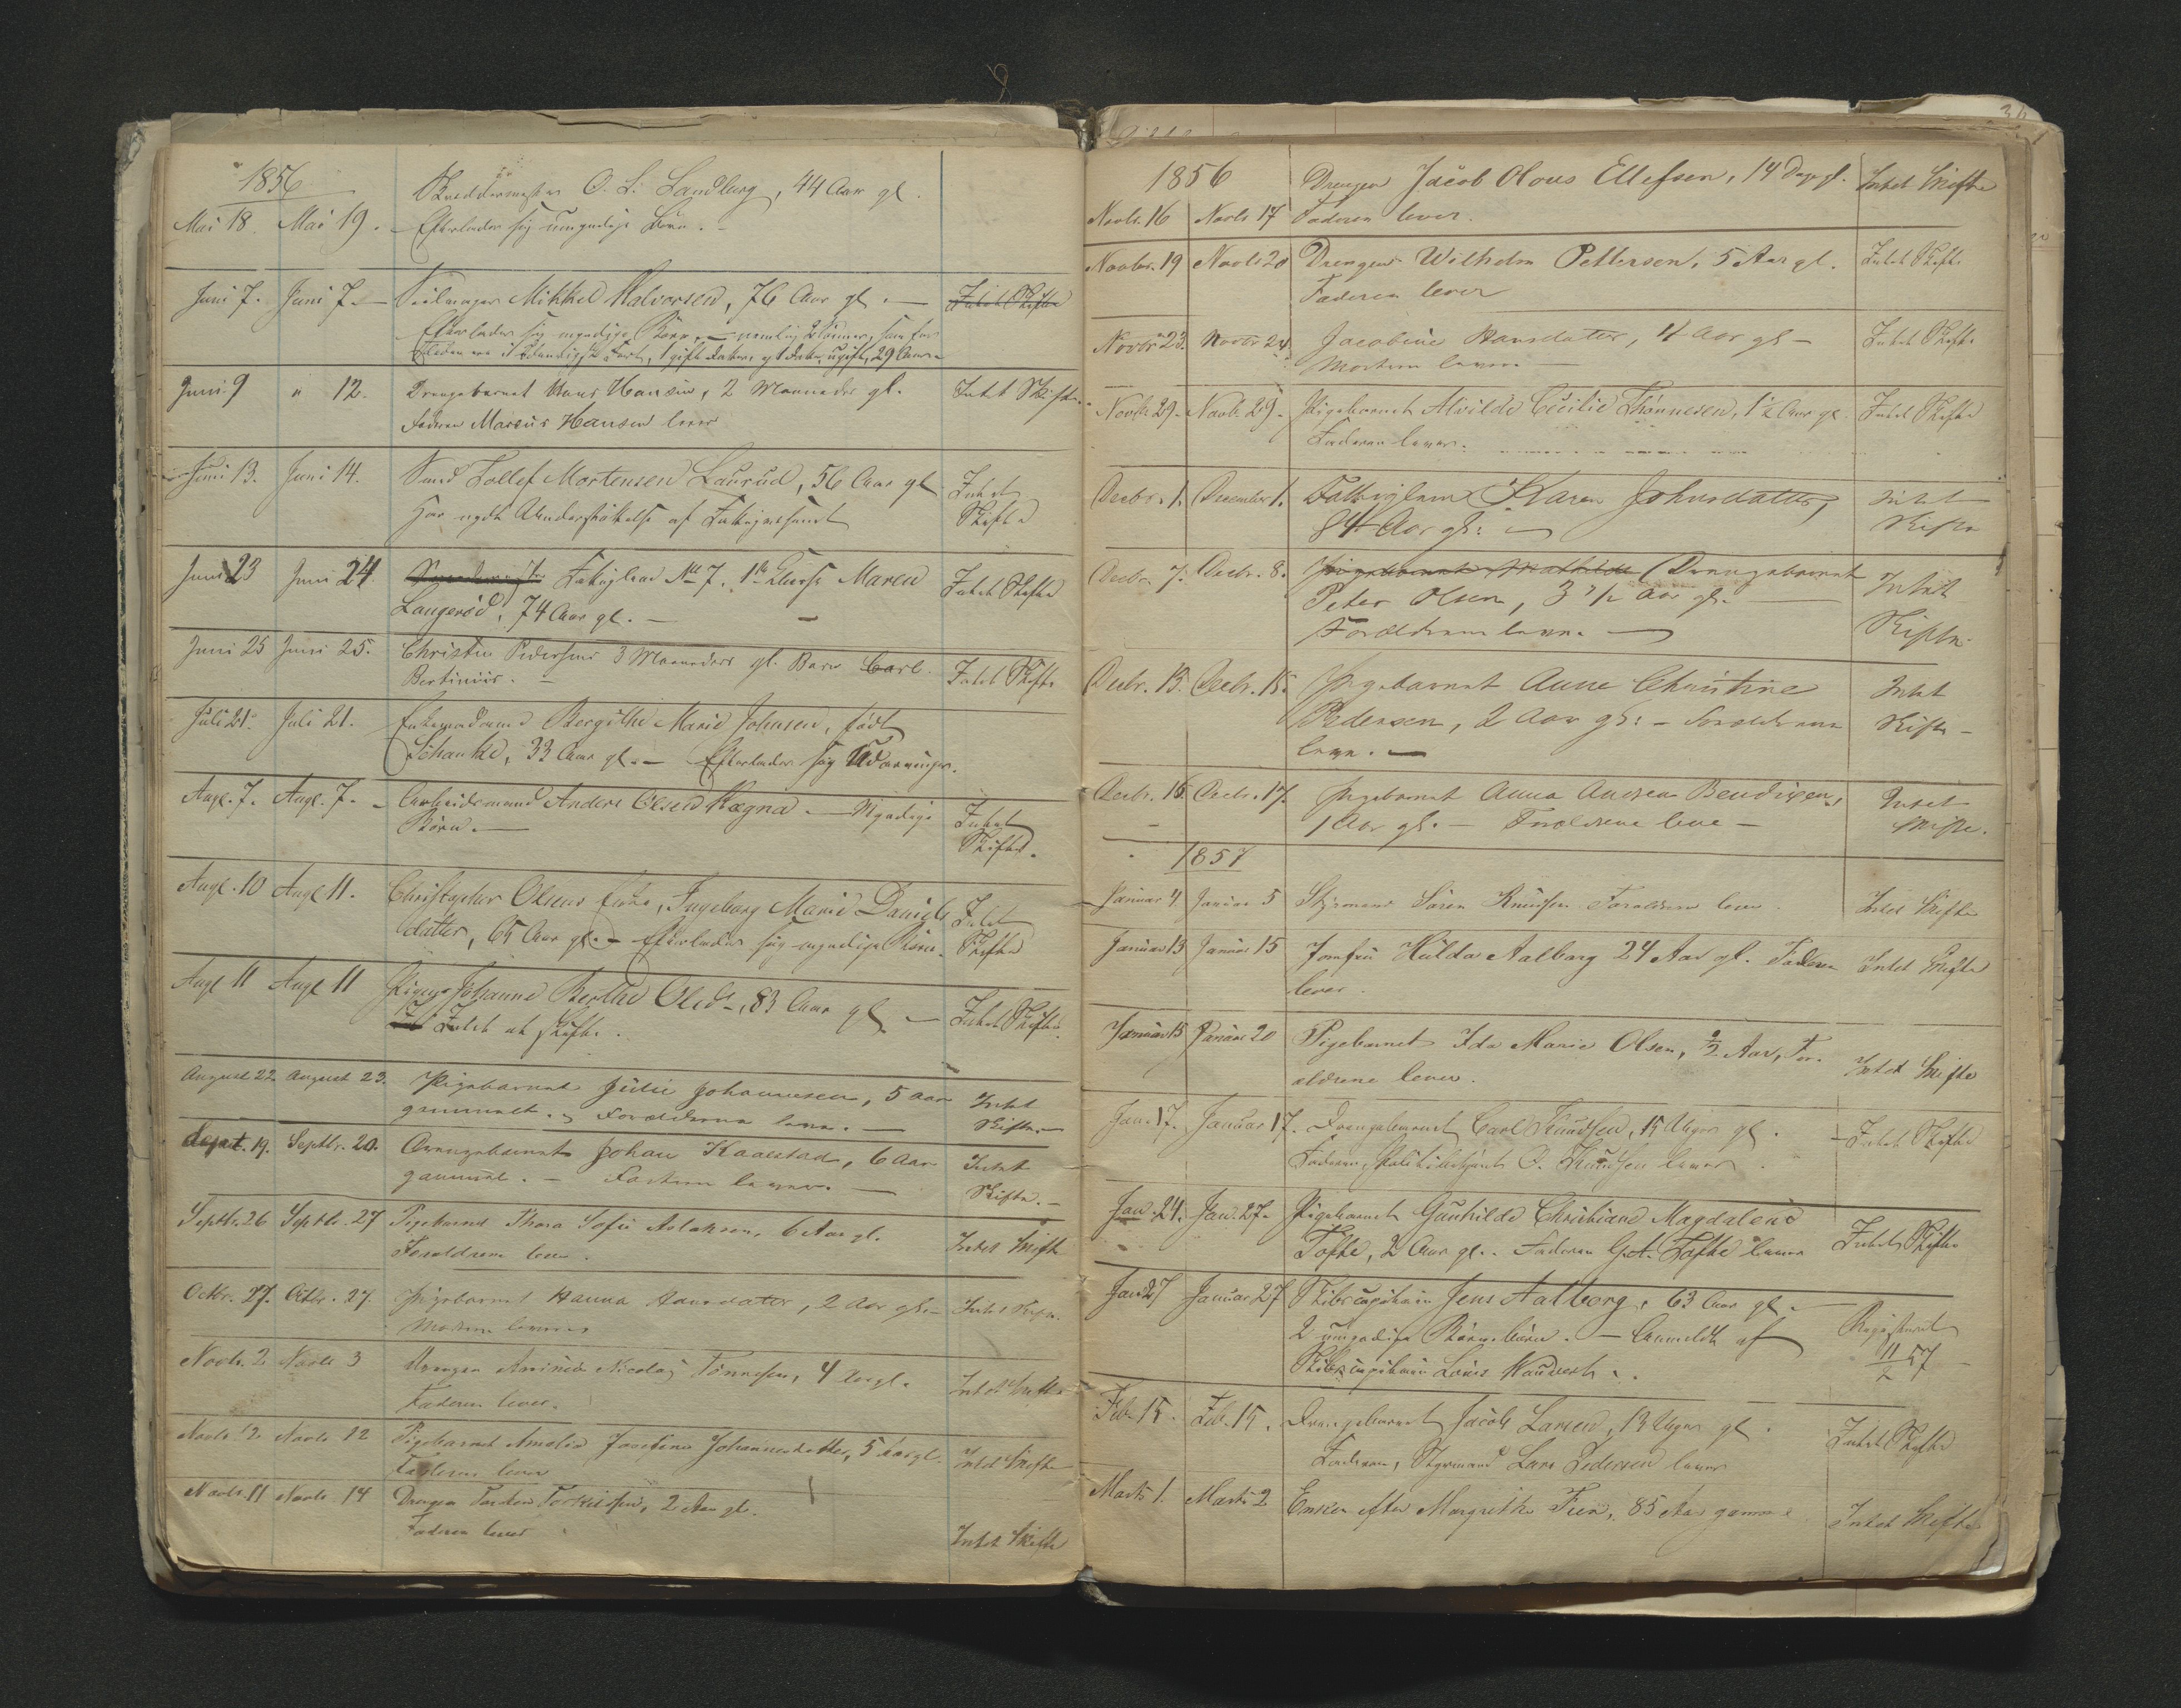 1856
Skræddermester O. L. Landberg, 44 Aar gl.
Mai 18. Mai 19. Efterlader sig umyndige Børn.
Juni 7. Juni 7. Seilmager Mikkel Halvorsen, 76 Aar gl. Intet Skifte
Efterlader sig myndige Børn, nemlig 2 Sønner, som for
Tiden ere i udenrigsk Fart, 1 gift Datter, og 1 Datter, ugift, 29 Aar.
Juni 9 " 12. Drengebarnet Hans Hansen, 2 Maaneder gl. Intet Skifte.
Faderen Marcus Hansen lever
Juni 13. Juni 14. Smed Tollef Mortensen Laurud, 56 Aar gl. Intet
Har nydt Understøttelse af Fattigvæsenet Skifte
Juni 23 Juni 24. Fattiglem No 7, 1ste Classe Maren Intet Skifte
Langerød, 74 Aar gl.
Juni 25 Juni 25. Christen Pedersens 3 Maaneders gl. Barn Carl Intet Skifte
Bertinius.
Juli 21. Juli 21. Enkemadame Bergithe Marie Johnsen, født
Schanke, 33 Aar gl. Efterlader sig Udarvinger.
Augt. 7. Augt. 7. Arbeidsmand Anders Olsen Rægna. Myndige Intet
Børn. Skifte.
Augt. 10 Augt 11. Christopher Olsens Enke, Ingeborg Marie Daniels Intet
datter, 65 Aar gl. Efterlader sig myndige Børn. Skifte
Augt 11 Augt 11 Pigen Johanne Berthe Olsd., 83 Aar gl. Intet Skifte.
Intet at skifte.
August 22. August 23. Pigebarnet Julie Johannesen, 5 Aar Intet
gammelt. Forældrene leve. Skifte.
Septbr. 19. Septbr. 20. Drengebarnet Johan Kaalstad, 6 Aar Intet
gammel. Faderen lever. Skifte.
Septbr. 26 Septbr. 27 Pigebarnet Thora Sofie Aslaksen, 6 Aar gl. Intet Skifte
Forældrene leve.
Octbr. 27. Octbr. 27. Pigebarnet Hanna Hansdatter, 2 Aar gl. Intet Skifte.
Moderen lever
Novbr. 2. Novbr 3 Drengen Nicolay Tønnesen, 4 Aar gl. Intet Skifte
Faderen lever.
Novbr. 12. Novbr. 12 Pigebarnet Amalie Josefine Johannesdatter, 5 Aar gl. Intet Skifte
Faderen lever
Novbr. 11 Novbr. 14 Drengen Torkilsen, 2 Aar gl.
Faderen lever Intet Skifte
1856 Drengen Jacob Olous Ellefsen, 14 Dage gl. Intet Skifte
Novbr. 16 Novbr 17 Faderen lever.
Novbr. 19 Novbr 20 Drengen Wilhelm Pettersen, 5 Aar gl. Intet Skifte
Faderen lever
Novbr 23. Novbr 24. Jacobine Hansdatter, 4 Aar gl Intet Skifte
Moderen lever.
Novbr. 29. Novbr. 29. Pigebarnet Alvilde Cecilie Thønnesen, 1½ Aar gl. Intet Skifte
Faderen lever.
Decbr. 1. December 1. Fattiglem Karen Johnsdatter, Intet
84 Aar gl. Skifte
Decbr. 7. Decbr. 8. Pigebarnet Mathilde Drengebarnet Intet
Peter Olsen, 3 ½ Aar gl.
Forældrene leve. Skifte.
Decbr. 15. Decbr. 15. Pigebarnet Anne Christine Intet
Pedersen, 2 Aar gl. Forældrene Skifte
leve.
Decbr. 16. Decbr. 17. Pigebarnet Anna Andrea Bendixen, Intet
1 Aar gl. Forældrene leve Skifte.
1857
Januar 4 Januar 5 Styrmand Søren Knudsen Forældrene leve. Intet Skifte
Januar 13 Januar 15 Jomfru Hulda Aalborg 24 Aar gl. Faderen Intet Skifte
lever.
Januar 15 Januar 20 Pigebarnet Ida Marie Olsen, ½ Aar, For-
ældrene lever. Intet Skifte
Jan. 17. Januar 17. Drengebarnet Carl Knudsen, 15 Uger gl. Intet Skifte
Faderen, Politibetjent O. Knudsen lever.
Jan. 24. Jan. 27. Pigebarnet Gunhilde Christiane Magdalene
Tofte, 2 Aar gl. Faderen G. A. Tofte lever Intet Skifte
Jan 27 Januar 27 Skibscapitain Jens Aalborg, 63 Aar gl.
2 umyndige Børnebørn. Anmeldt af Registreret
Skibscapitain Louis 11/2 57
Feb. 15. Feb. 15. Drengebarnet Jacob Larsen, 13 Uger gl. Intet Skifte
Faderen, Styrmand Lars Pedersen lever
Marts 1. Marts 2 Enken efter Margrethe Fien, 85 Aar gammel Intet Skifte